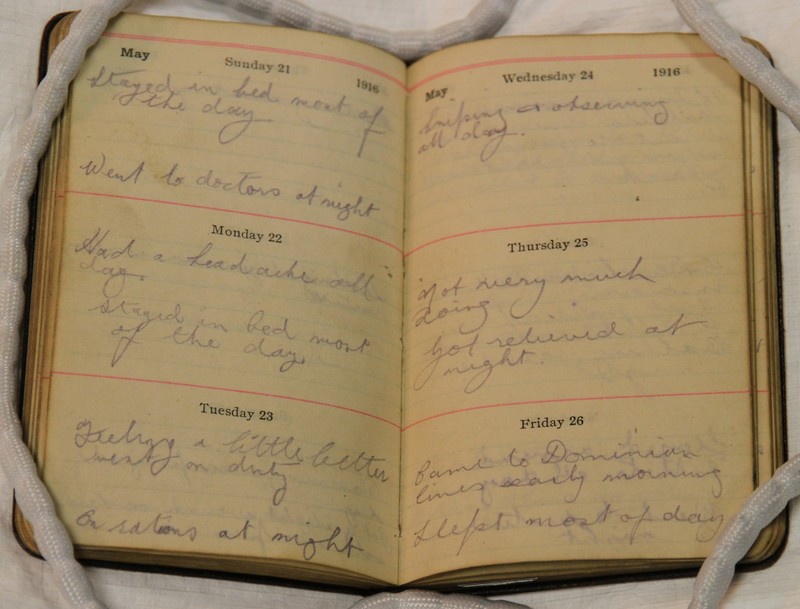 May Sunday 21 1916
Stayed in bed most of
the day
Went to doctors at night
Monday 22
Had a head ache all
day.
Stayed in bed most
of the day.
Tuesday 23
Feeling a little better
went on duty
On rations at night
May Wednesday 24 1916
Sniping & observing
all day.
Thursday 25
Not very much
doing
Got relieved at
night.
Friday 26
Came to Dominion
lines early morning
Slept most of day